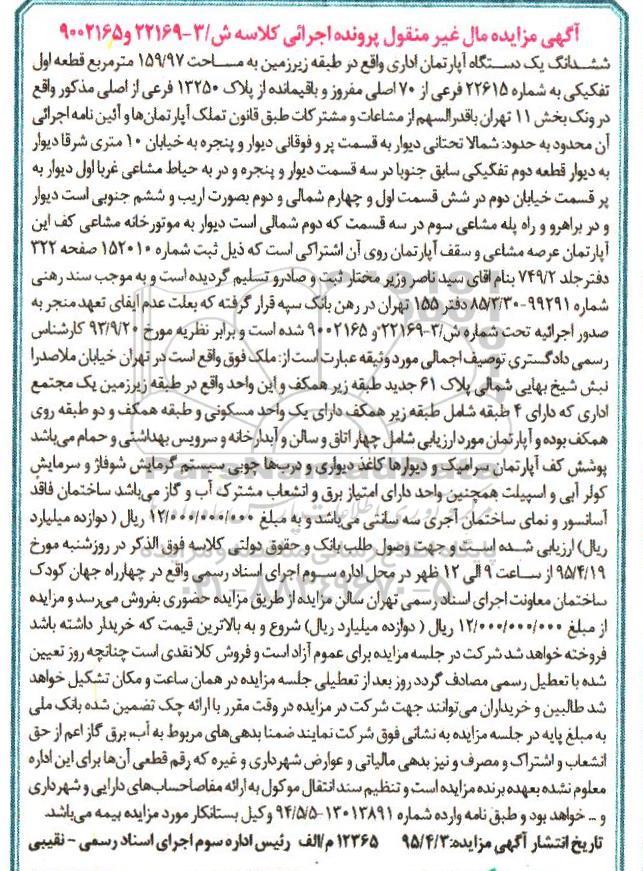 آگهی مزایده مال غیر منقول پرونده اجرائی کلاسه ش/۳-۲۲۱۶۹ و۹۰۰۲۱۶۵
ششدانگ یک دستگاه آپارتمان اداری واقع در طبقه زیرزمین به مساحت ۱۵۹/۹۷ مترمربع قطعه اول
تفکیکی به شماره ۲۲۶۱۵ فرعی از ۷۰ اصلی مفروز و باقیمانده از پلاک ۱۳۲۵۰ فرعی از اصلی مذکور واقع
در ونک بخش ۱۱ تهران باقدرالسهم از مشاعات و مشترکات طبق قانون تملک آپارتمان‌ها و آئین نامه اجرائی
آن محدود به حدود: شمالا تحتانی دیوار به قسمت پر و فوقانی دیوار و پنجره به خیابان ۱۰ متری شرقا دیوار
به دیوار قطعه دوم تفکیکی سابق جنوبا در سه قسمت دیوار و پنجره و در به حیاط مشاعی غربا اول دیوار به
پر قسمت خیابان دوم در شش قسمت اول و چهارم شمالی و دوم بصورت اریب و ششم جنوبی است دیوار
و در براهرو و راه پله مشاعی سوم در سه قسمت که دوم شمالی است دیوار به موتورخانه مشاعی کف این
آپارتمان عرصه مشاعی و سقف آپارتمان روی آن اشتراکی است که ذیل ثبت شماره ۱۵۲۰۱۰ صفحه ۳۲۲
دفتر جلد ۷۴۹/۲ بنام اقای سید ناصر وزیر مختار ثبت و صادر و تسلیم گردیده است و به موجب سند رهنی
شماره ۹۹۲۹۱-۸۵/۳/۳۰ دفتر ۱۵۵ تهران در رهن بانک سپه قرار گرفته که بعلت عدم ایفای تعهد منجر به
صدور اجرائیه تحت شماره ش/۳-۲۲۱۶۹ و ۹۰۰۲۱۶۵ شده است و برابر نظریه مورخ ۹۳/۹/۲۰ کارشناس
رسمی دادگستری توصیف اجمالی مورد وثیقه عبارت است از: ملک فوق واقع است در تهران خیابان ملاصدرا
نبش شیخ بهایی شمالی پلاک ۶۱ جدید طبقه زیر همکف و این واحد واقع در طبقه زیرزمین یک مجتمع
اداری که دارای ۴ طبقه شامل طبقه زیر همکف دارای یک واحد مسکونی و طبقه همکف و دو طبقه روی
همکف بوده و آپارتمان مورد ارزیابی شامل چهار اتاق و سالن و آبدارخانه و سرویس بهداشتی و حمام می‌باشد
پوشش کف آپارتمان سرامیک و دیوارها کاغذ دیواری و درب‌ها چوبی سیستم گرمایش شوفاژ و سرمایش
کولر آبی و اسپیلت همچنین واحد دارای امتیاز برق و انشعاب مشترک آب و گاز می‌باشد ساختمان فاقد
آسانسور و نمای ساختمان آجری سه سانتی می‌باشد و به مبلغ ۱۲/۰۰۰/۰۰۰/۰۰۰ ریال ( دوازده میلیارد
ریال) ارزیابی شده است و جهت وصول طلب بانک و حقوق دولتی کلاسه فوق الذکر در روزشنبه مورخ
۹۵/۴/۱۹ از ساعت ۹ الی ۱۲ ظهر در محل اداره سوم اجرای اسناد رسمی واقع در چهارراه جهان کودک
ساختمان معاونت اجرای اسناد رسمی تهران سالن مزایده از طریق مزایده حضوری بفروش می‌رسد و مزایده
از مبلغ ۱۲/۰۰۰/۰۰۰/۰۰۰ ریال ( دوازده میلیارد ریال) شروع و به بالاترین قیمت که خریدار داشته باشد
فروخته خواهد شد شرکت در جلسه مزایده برای عموم آزاد است و فروش کلا نقدی است چنانچه روز تعیین
شده با تعطیل رسمی مصادف گردد روز بعد از تعطیلی جلسه مزایده در همان ساعت و مکان تشکیل خواهد
شد طالبین و خریداران می‌توانند جهت شرکت در مزایده در وقت مقرر با ارائه چک تضمین شده بانک ملی
به مبلغ پایه در جلسه مزایده به نشانی فوق شرکت نمایند ضمنا بدهی‌های مربوط به آب، برق گاز اعم از حق
انشعاب و اشتراک و مصرف و نیز بدهی مالیاتی و عوارض شهرداری و غیره که رقم قطعی آن‌ها برای این اداره
معلوم نشده بعهده برنده مزایده است و تنظیم سند انتقال موکول به ارائه مفاصاحساب‌های دارایی و شهرداری
و ... خواهد بود و طبق نامه وارده شماره ۱۳۰۱۳۸۹۱-۹۴/۵/۵ وکیل بستانکار مورد مزایده بیمه می‌باشد.
تاریخ انتشار آگهی مزایده: ۹۵/۴/۳ ۱۲۳۶۵ م/الف رئیس اداره سوم اجرای اسناد رسمی - نقیبی
ParsNamadData
۰۲۱-۸۸۳۴۹۶۷۰-۵